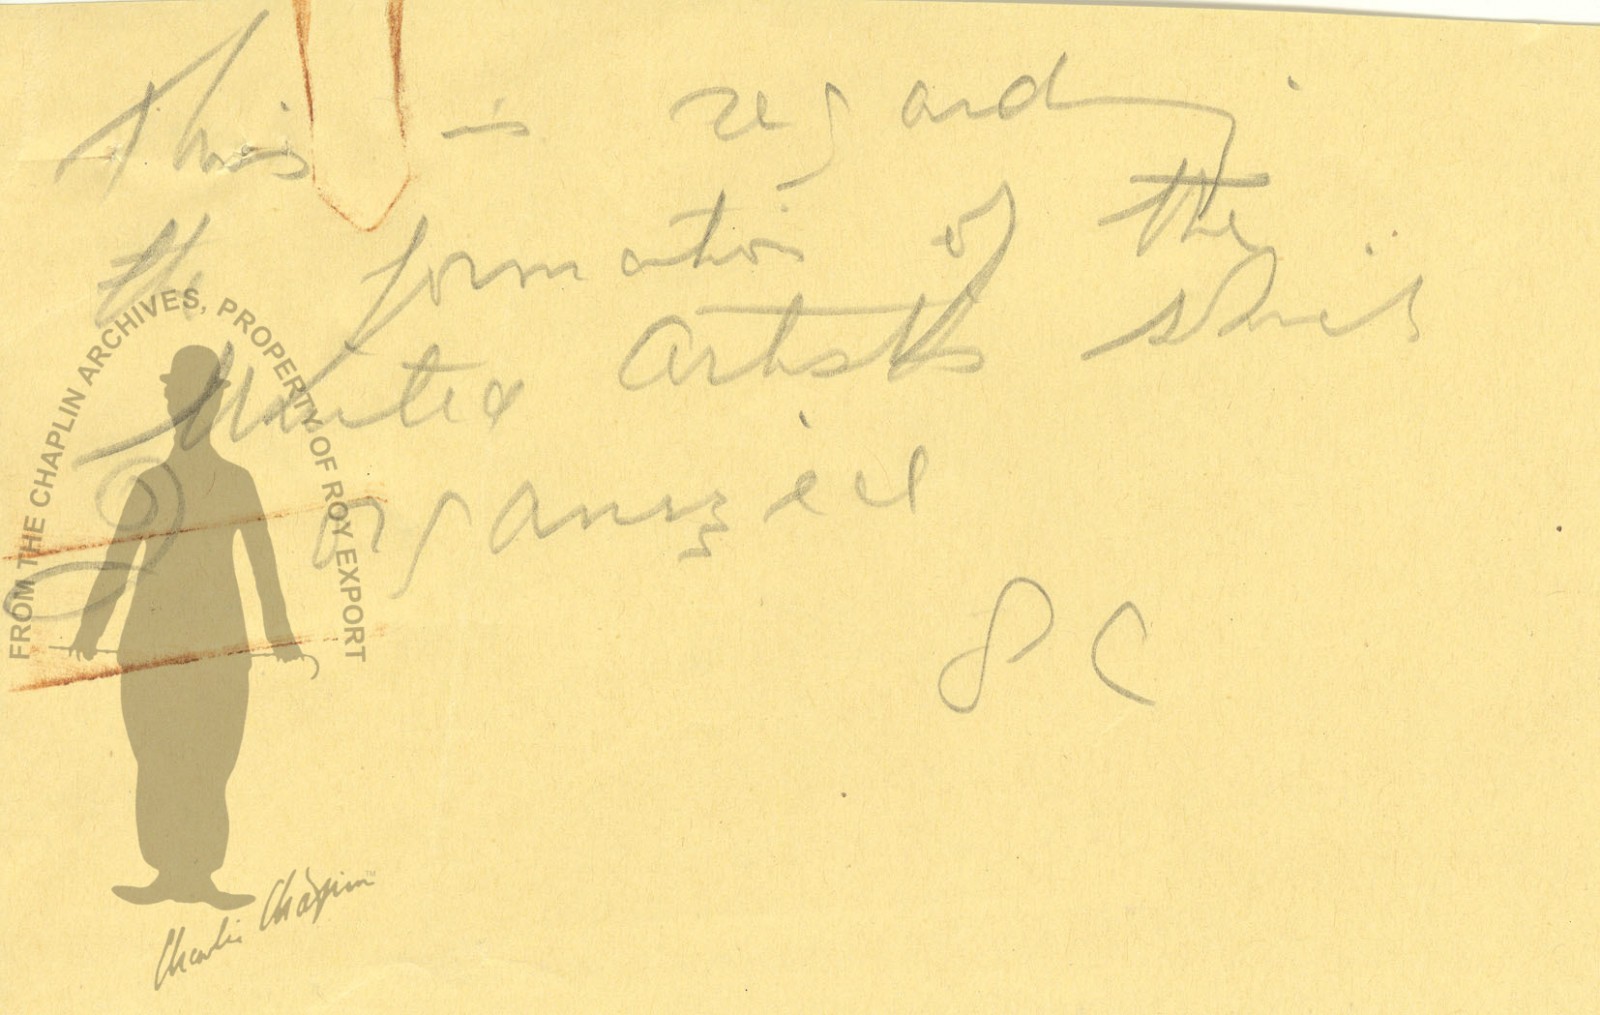 This is regarding
the formation of the
United Artists which
I organized
SC
FROM THE CHAPLIN ARCHIVES, PROPERTY OF ROY EXPORT
Charlie Chaplin™